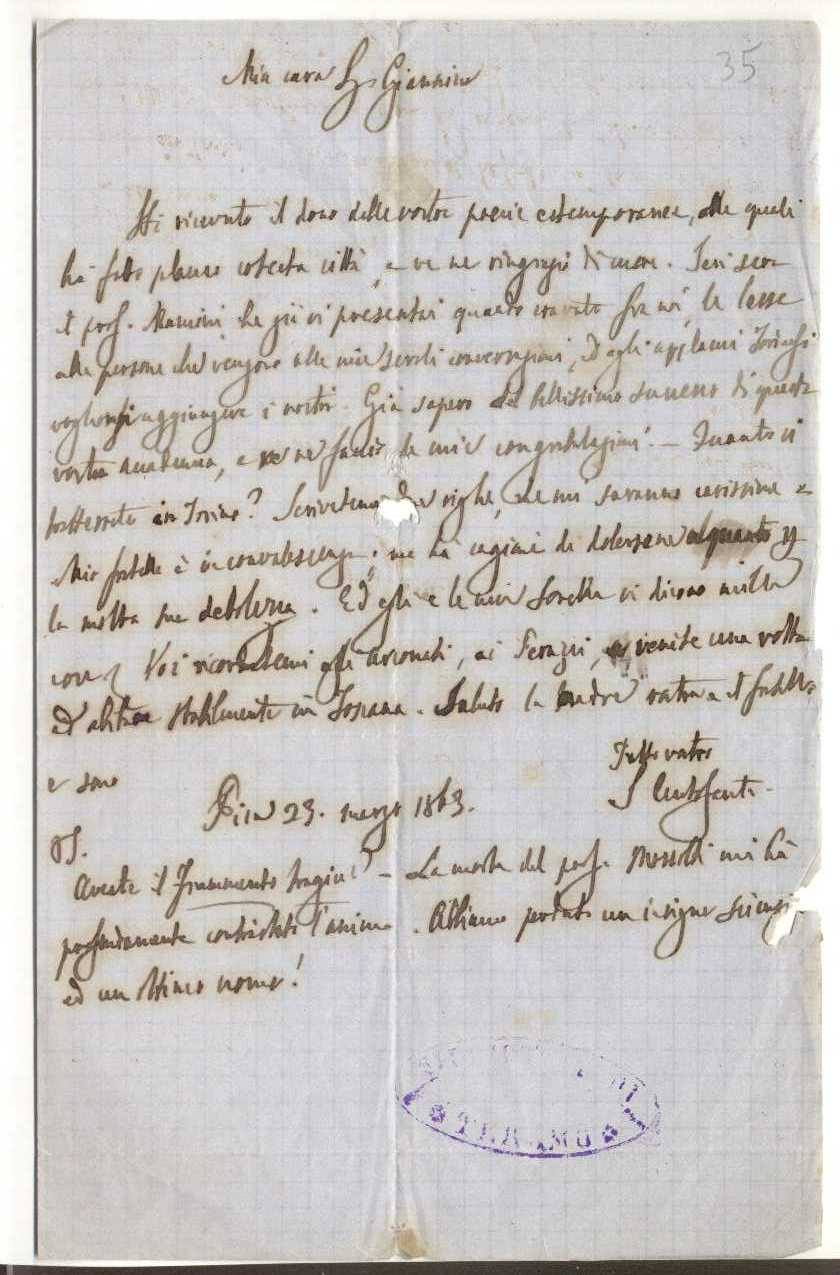 35
Mia cara Sig.a Giannina
Ho ricevuto il dono delle vostre poesie estemporanee, alle quali
ha fatto plauso cotesta città, e ve ne ringrazio di cuore. Ieri sera
il prof. Mancini, che già vi presentai quando eravate fra noi, le lesse
alle persone che vengono alle mie serali conversazioni, ed agli applausi Torinesi
voglionsi aggiungere i nostri. Già sapevo del bellissimo successo di questa
vostra accademia, e ve ne faccio le mie congratulazioni. — Quanto vi
tratterrete in Torino? Scrivetemi due righe, che mi saranno carissime
Mio fratello è in convalescenza; ma ha cagione di dolersene alquanto per
la molta sua debolezza. Ed egli e le mie sorelle vi dicono mille
cose Voi ricordatemi agli Arconati, ai Peruzzi, e venite una volta
ad abitare stabilmente in Toscana. Saluto la madre vostra e il fratello
e sono
Tutto vostro
Pisa 23. marzo 1863.
S Centofanti
PS.
Aveste il Frammento tragico? — La morte del prof. Mossotti mi ha
profondamente contristato l'animo. Abbiamo perduto un insigne
ed un ottimo uomo!